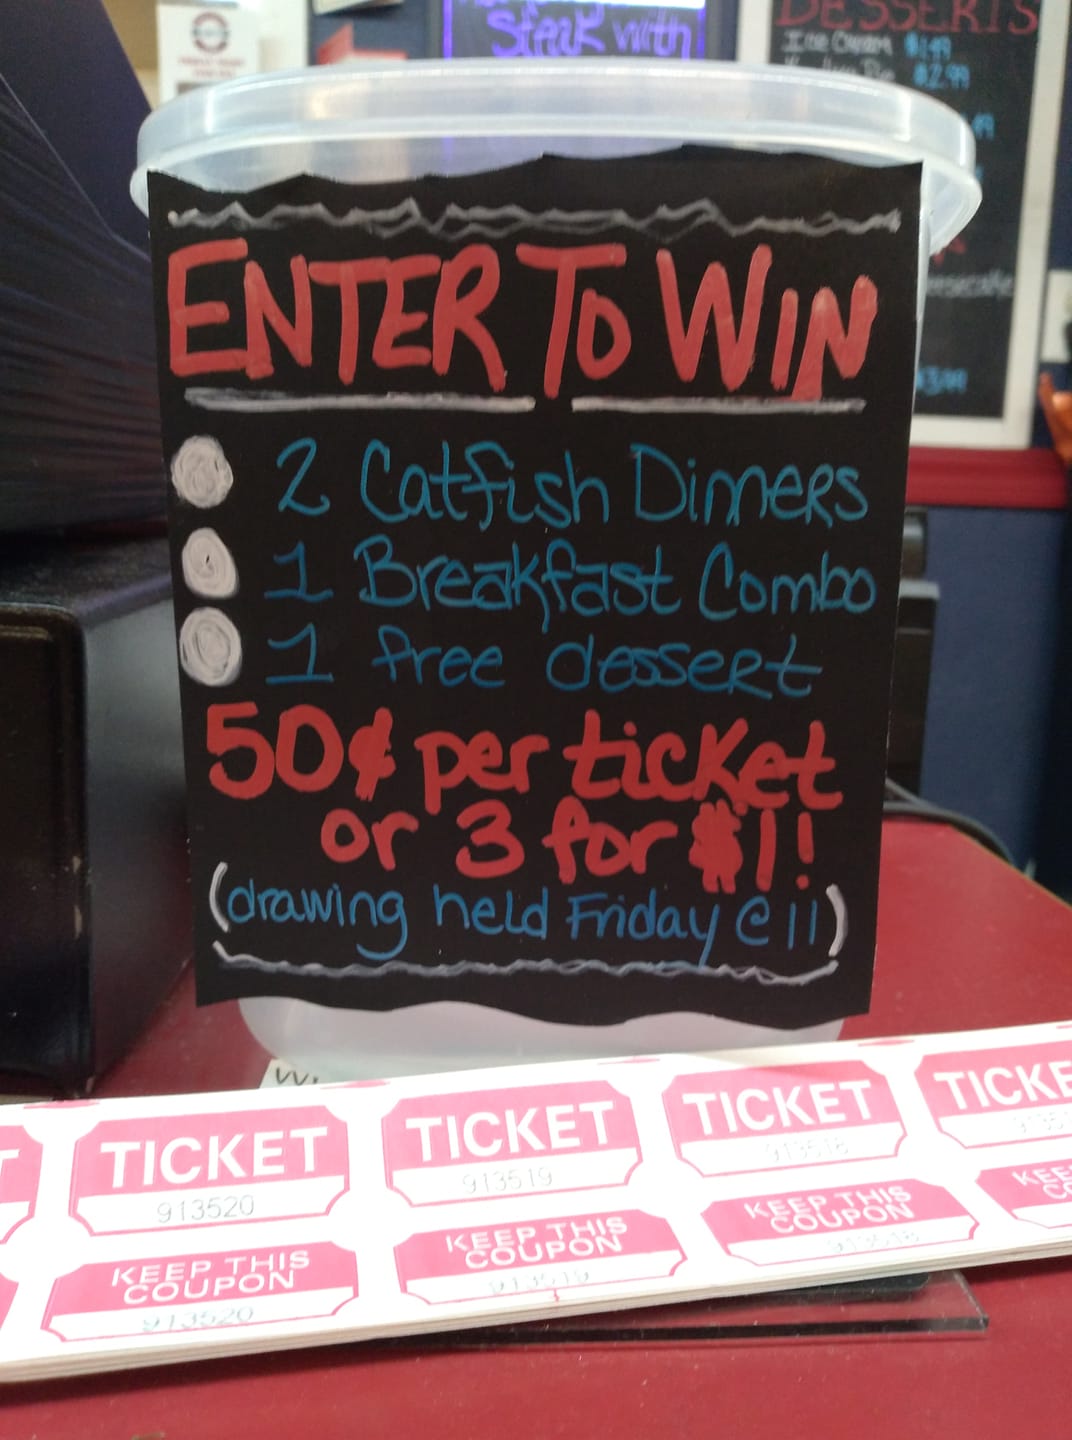 Steak with
DESSERTS
Ice Cream $1.49
$2.99
ENTER TO WIN
2 Catfish Dinners
1 Breakfast Combo
1 free dessert
50¢ per ticket
or 3 for $1!
(drawing held Friday @ 11)
TICKET
913520
TICKET
913519
TICKET
913518
KEEP THIS
COUPON
913520
KEEP THIS
COUPON
913519
KEEP THIS
COUPON
913518